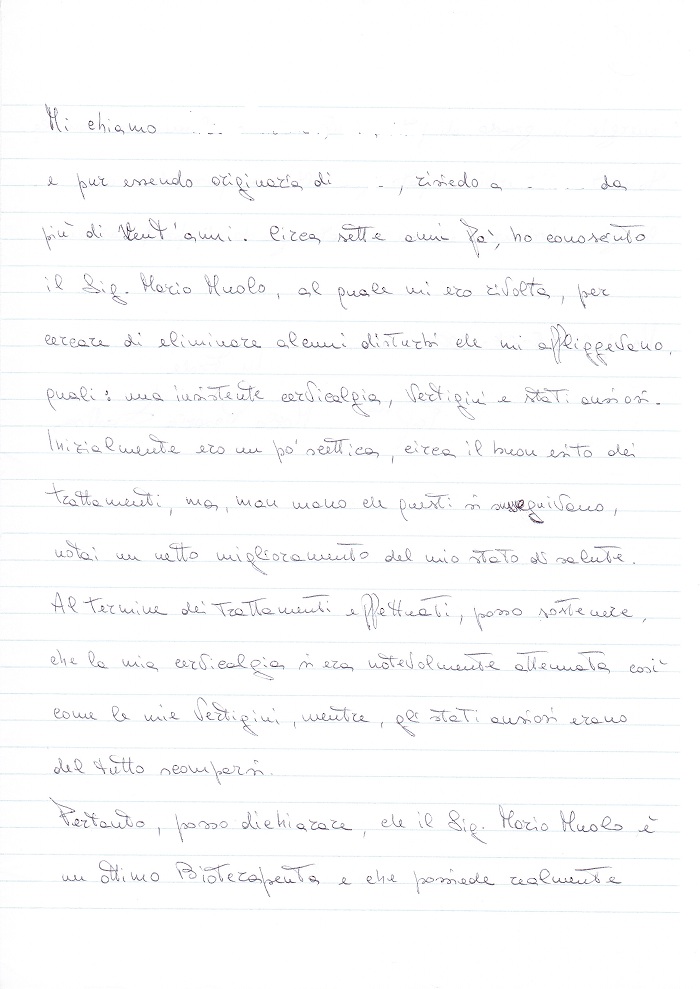 Mi chiamo
e pur essendo originaria di , risiedo a da
più di vent'anni. Circa sette anni fa', ho conosciuto
il Sig. Mario Muolo, al quale mi ero rivolta, per
cercare di eliminare alcuni disturbi che mi affliggevano,
quali: una insistente cervicalgia, vertigini e stati ansiosi.
Inizialmente ero un po' scettica, circa il buon esito dei
trattamenti, ma, man mano che questi si susseguivano,
notai un netto miglioramento del mio stato di salute.
Al termine dei trattamenti effettuati, posso sostenere,
che la mia cervicalgia si era notevolmente attenuata così
come le mie vertigini, mentre, gli stati ansiosi erano
del tutto scomparsi.
Pertanto, posso dichiarare, che il Sig. Mario Muolo è
un ottimo Bioterapeuta e che possiede realmente